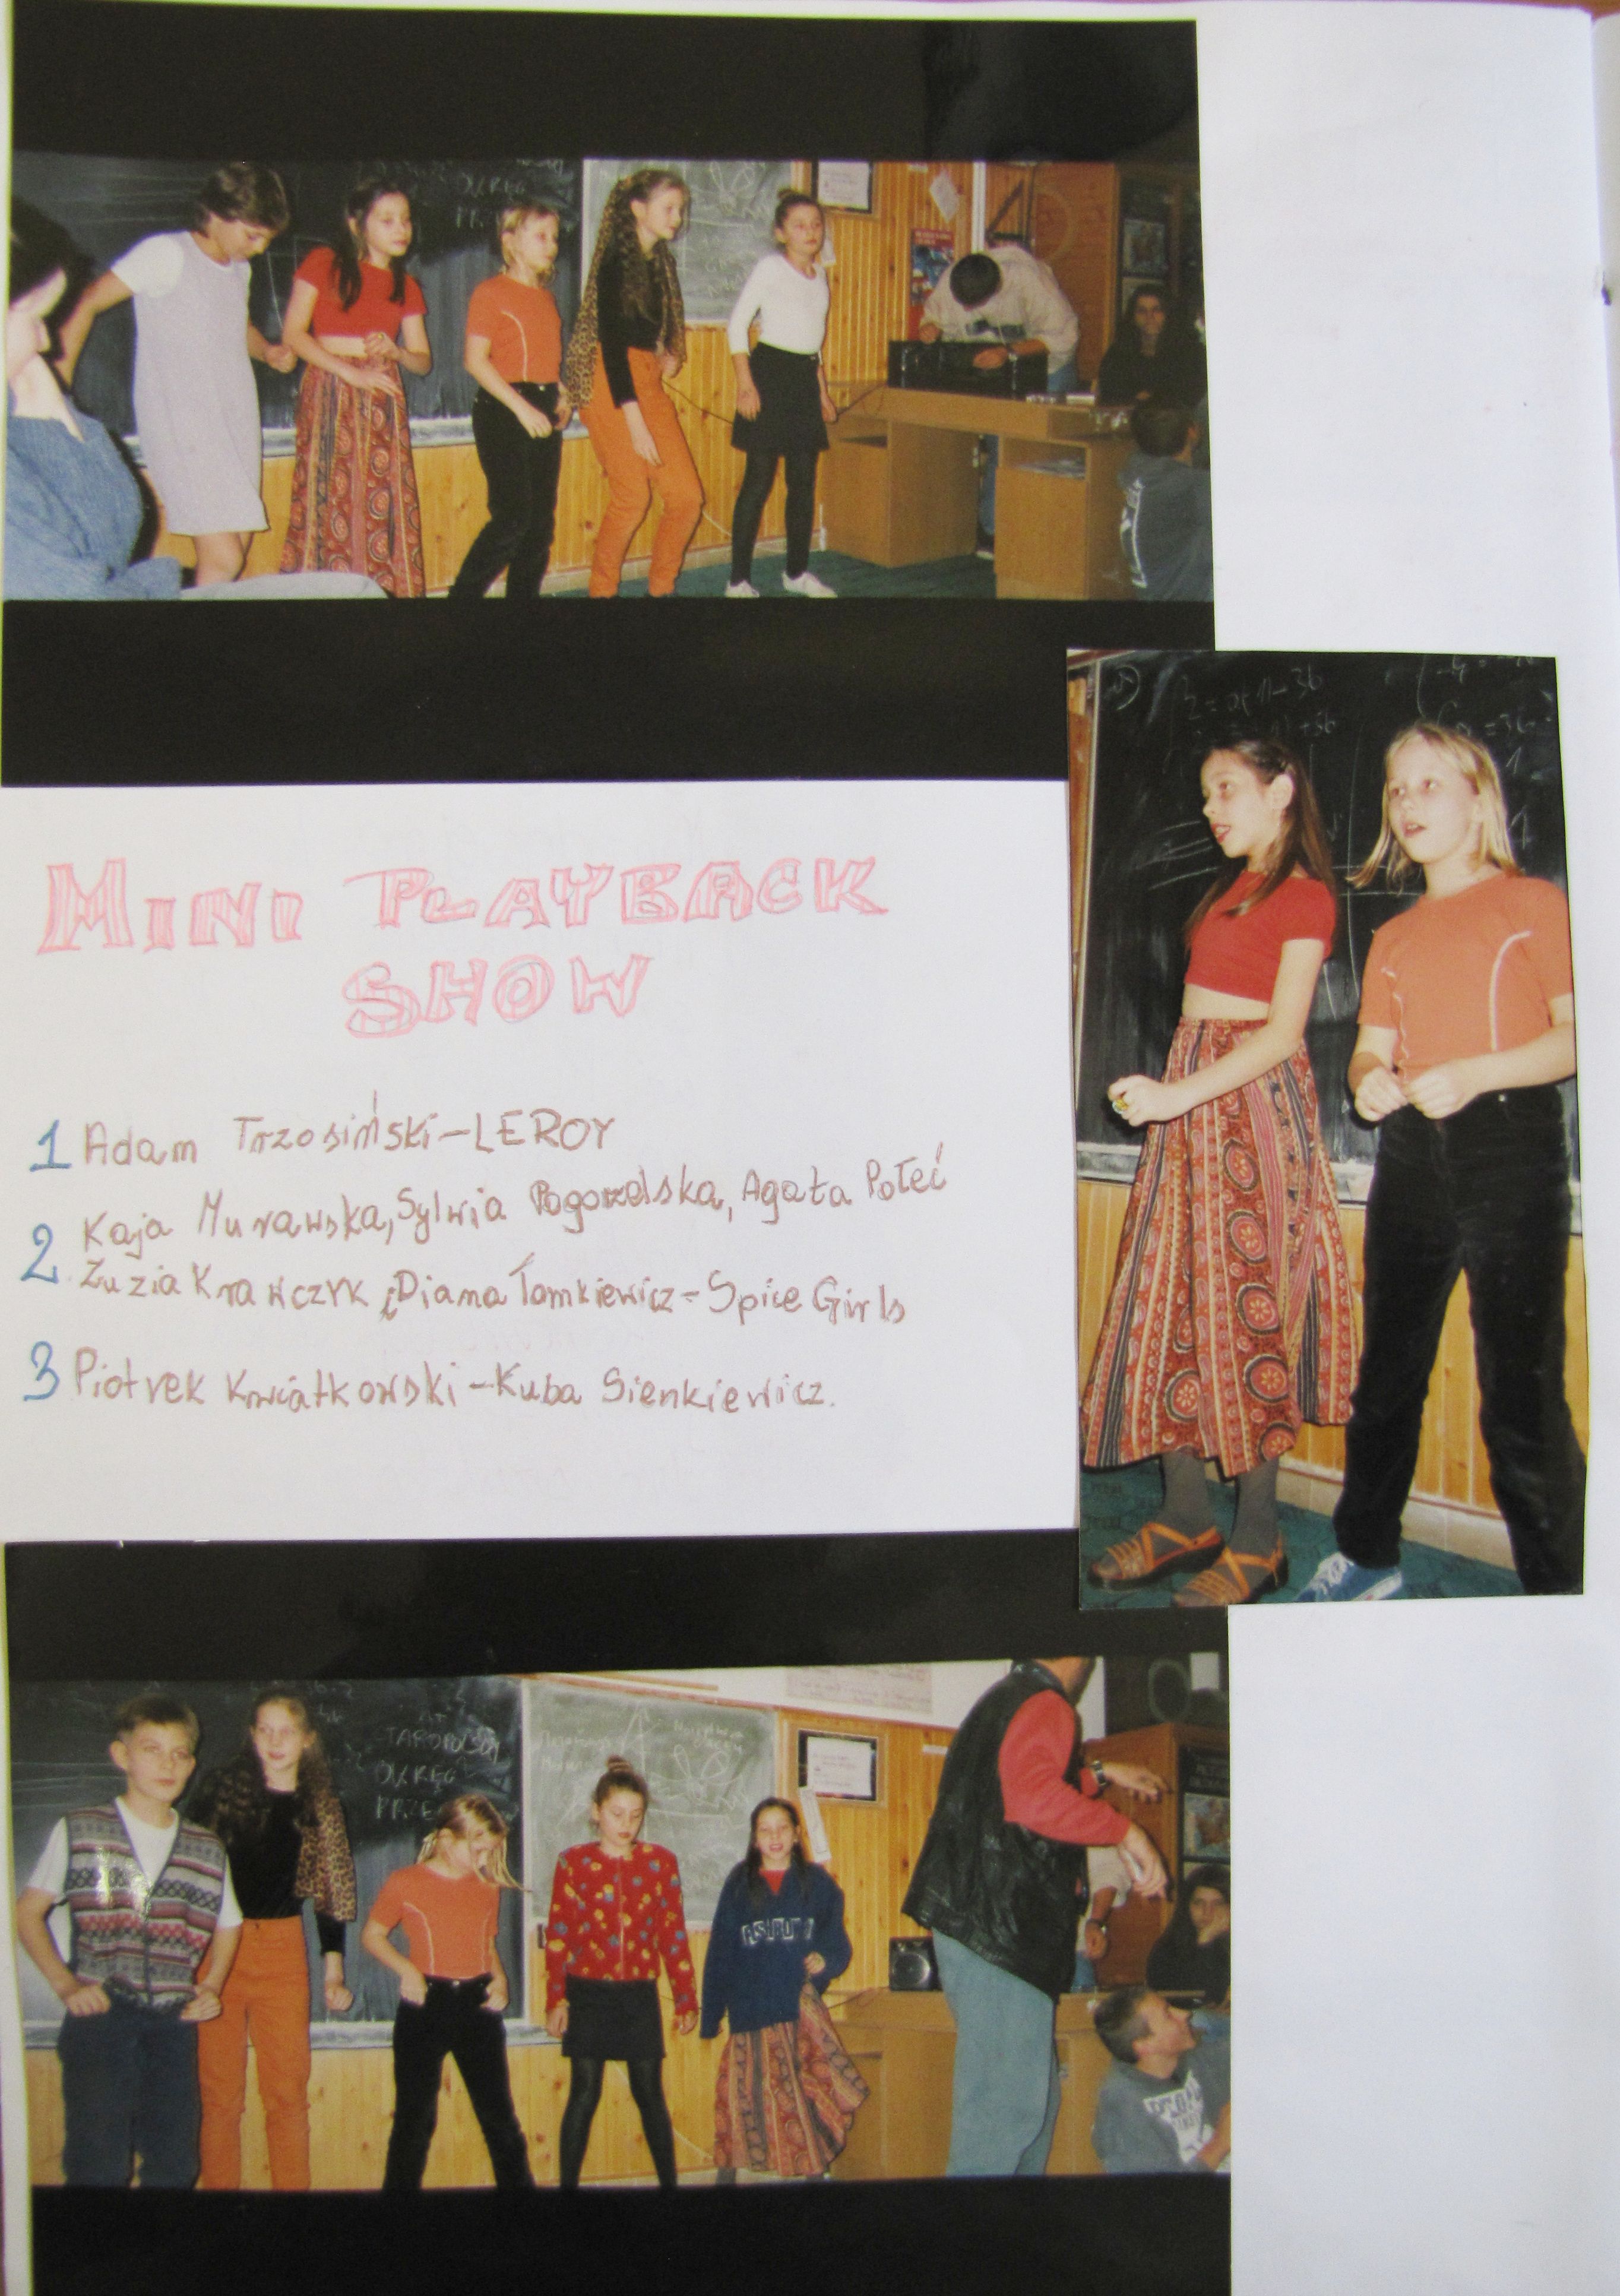 MINI PLAYBACK
SHOW
1 Adam Trzosiński-LEROY
2 Kaja Murawska, Sylwia Pogorzelska, Agata Połeć
Zuzia Krawczyk i Diana Tomkiewicz - Spice Girls
3 Piotrek Kwiatkowski - Kuba Sienkiewicz.
OKRĘG
STAROPOLSKI
OKRĘG
PRZE